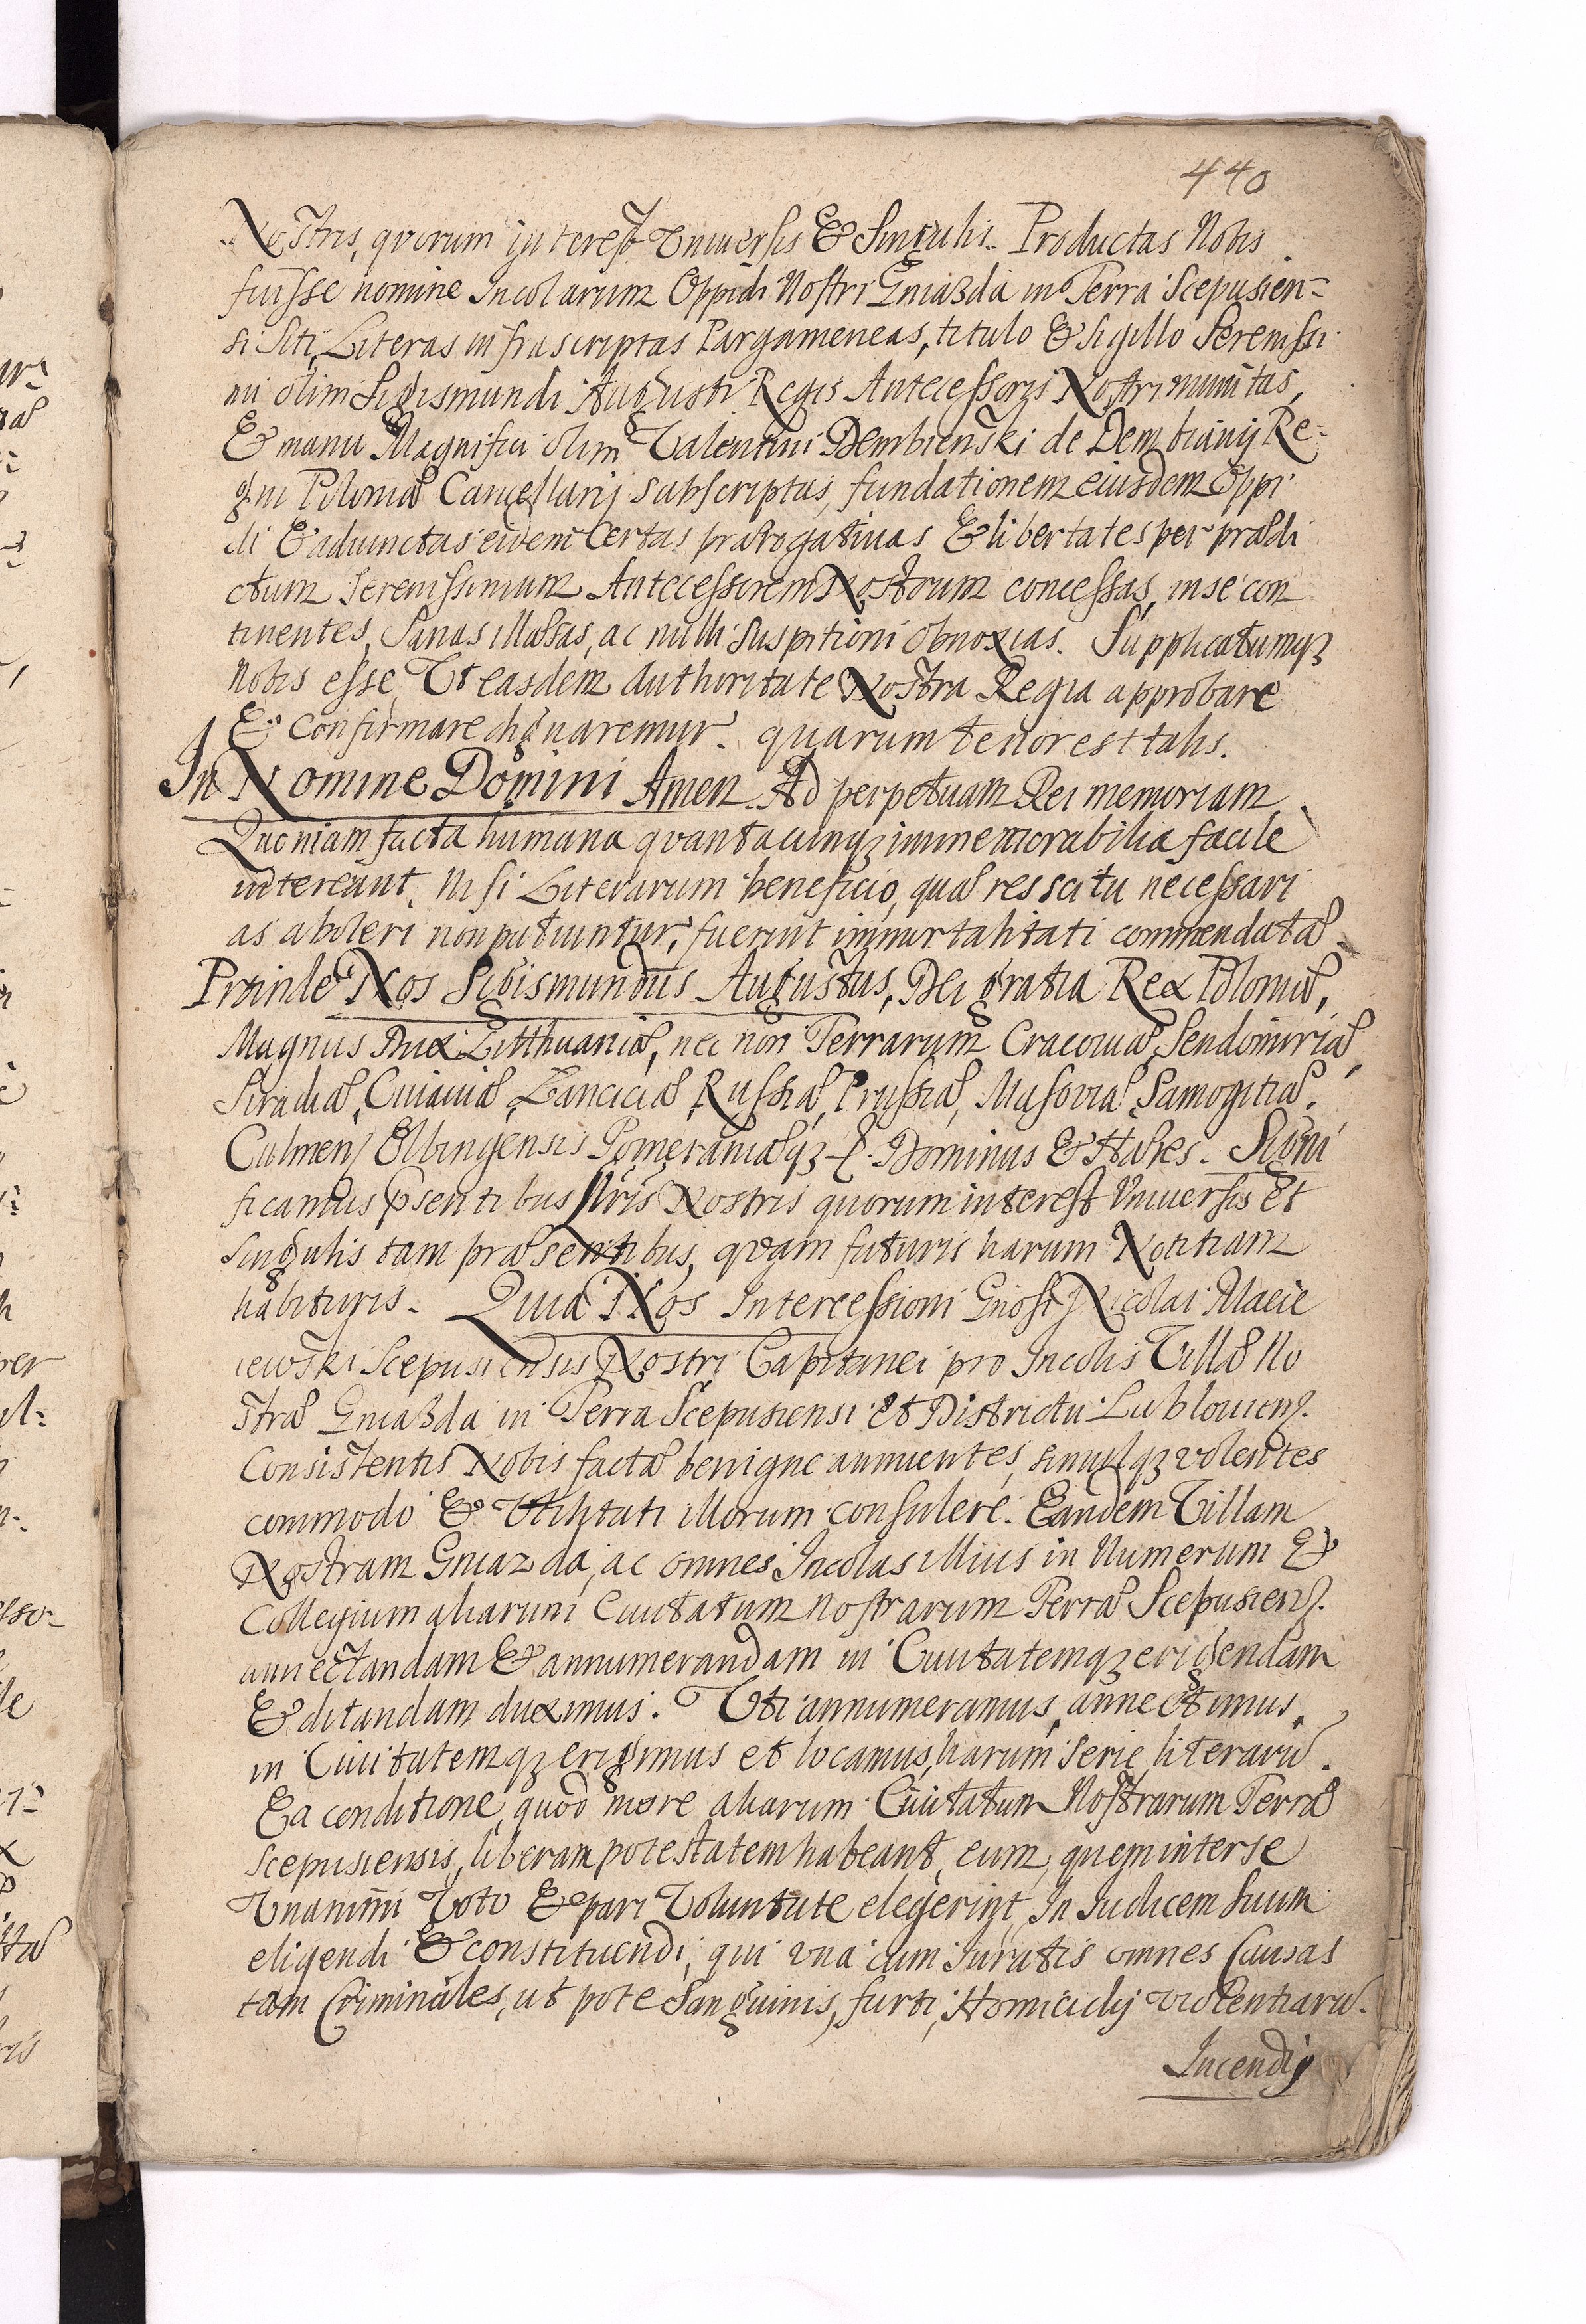 440
Nostris, quorum interest Vniuersis & Singulis. Productas Nobis
fuisse nomine Incolarum Oppidi Nostri Gniazda in Terra Scepusien=
si Siti, Literas infrascriptas Pargameneas, titulo & sigillo Serenissi
mi olim Sigismundi Augusti Regis Antecessoris Nostri munitas,
& manu Magnifici olim Valentini Dembienski de Dembiany Re=
gni Poloniæ Cancellarij subscriptas, fundationem eiusdem Oppi
di & adiunctas eidem certas prærogatiuas & libertates per prædi
ctum Serenissimum Antecessorem Nostrum concessas, in se con
tinentes, Sanas illæsas, ac nulli suspitioni obnoxias. Supplicatumqz
Nobis esse, Vt easdem Authoritate Nostra Regia approbare
& confirmare dignaremur. quarum tenor est talis.
In Nomine Domini Amen. Ad perpetuam Rei memoriam
Quoniam facta humana quantacunqz immemorabilia facile
intereunt, Nisi Literarum beneficio, quæ res scitu necessari
as aboleri non patiuntur, fuerint immortalitati commendatæ
Proinde Nos Sigismundus Augustus, Dei gratia Rex Poloniæ,
Magnus Dux Litthuaniæ, nec non Terrarum Cracouiæ, Sendomiriæ,
Siradiæ, Cuiauiæ, Lanciciæ, Russiæ, Prussiæ, Masoviæ Samogitiæ,
Culmen Elbingensis Pomeraniæqz &. Dominus & Hæres. Signi
ficamus psentibus Lris Nostris quorum interest Vniuersis et
singulis tam præsentibus, quam futuris harum Notitiam
habituris. Quia Nos Intercessioni Gnosi Nicolai Macie
iewski Scepusiensis Nostri Capitanei pro Incolis Villæ No
stræ Gniazda in Terra Scepusiensi et Districtu Lublouien.
Consistentis Nobis factæ benigne annuentes, simulqz volentes
commodo & Vtilitati illorum consulere. Eandem Villam
Nostram Gniazda, ac omnes Incolas illius in Numerum &
Collegium aliarum Ciuitatum nostrarum Terræ Scepusien.
annectandam & annumerandam in Ciuitatemqz erigendam
& ditandam duximus. Vti annumeramus, annectimus,
in Ciuitatemqz erigimus et locamus, harum serie literaru.
Ea conditione, quod more aliarum Ciuitatum Nostrarum Terræ
Scepusiensis, liberam potestatem habeant, eum, quem inter se
Vnanimi Voto & pari Voluntate elegerint, In Iudicem suum
eligendi & constituendi, qui vna cum Iuratis omnes Causas
tam Criminales, ut pote Sanguinis, furti, Homicidij violentiaru.
Incendij